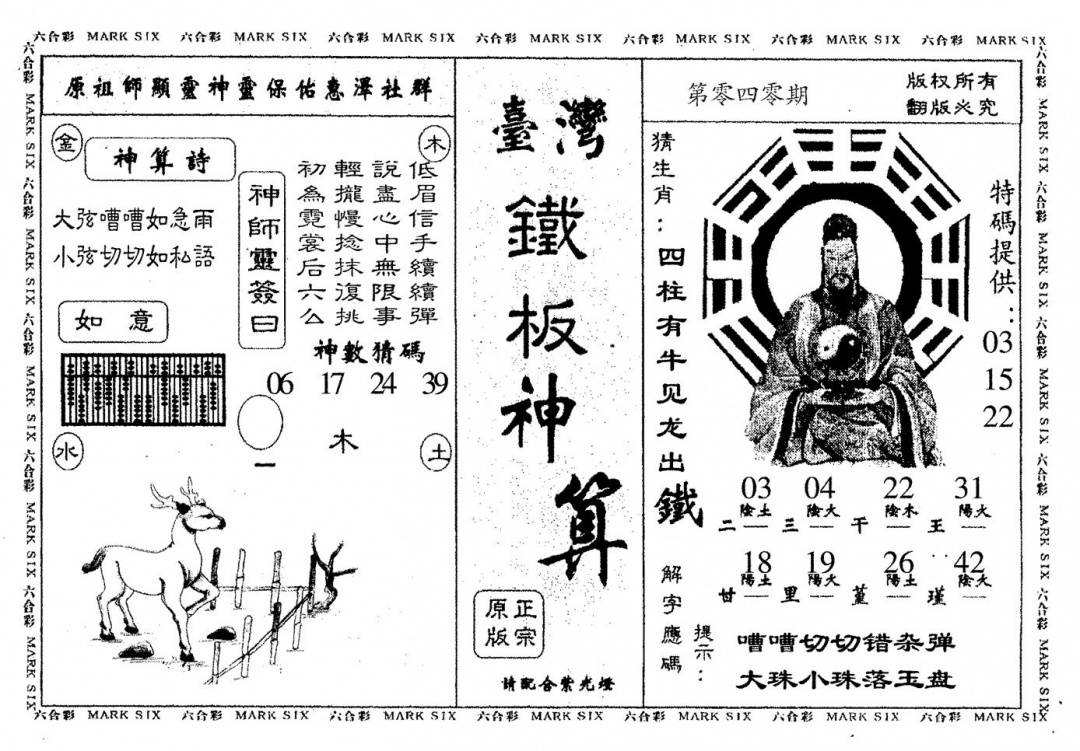 六合彩 MARK SIX 六合彩 MARK SIX 六合彩 MARK SIX 六合彩 MARK SIX 六合彩 MARK SIX 六合彩 MARK SIX 六合彩 MARK SIX
六合彩 MARK SIX 六合彩 MARK SIX 六合彩 MARK SIX 六合彩 MARK SIX 六合彩 MARK SIX
原祖師顯靈神靈保佑惠澤社群
金
木
神算詩
大弦嘈嘈如急雨
小弦切切如私語
如意
神師靈簽曰
低眉信手續續彈
說盡心中無限事
輕攏慢捻抹復挑
初為霓裳后六么
神數猜碼
06 17 24 39
木
一
水
土
臺灣
鐵板神算
正宗
原版
請配合紫光燈
第零四零期
版权所有
翻版必究
猜生肖：四柱有牛见龙出鐵
特碼提供：
03
15
22
03 04 22 31
陰土 陰火 陰木 陽火
二 三 干 王
18 19 26 42
陽土 陽火 陽土 陰火
甘 里 堇 瑾
解字應碼
提示：
嘈嘈切切错杂弹
大珠小珠落玉盘
六合彩 MARK SIX 六合彩 MARK SIX 六合彩 MARK SIX 六合彩 MARK SIX 六合彩 MARK SIX
六合彩 MARK SIX 六合彩 MARK SIX 六合彩 MARK SIX 六合彩 MARK SIX 六合彩 MARK SIX 六合彩 MARK SIX 六合彩 MARK SIX